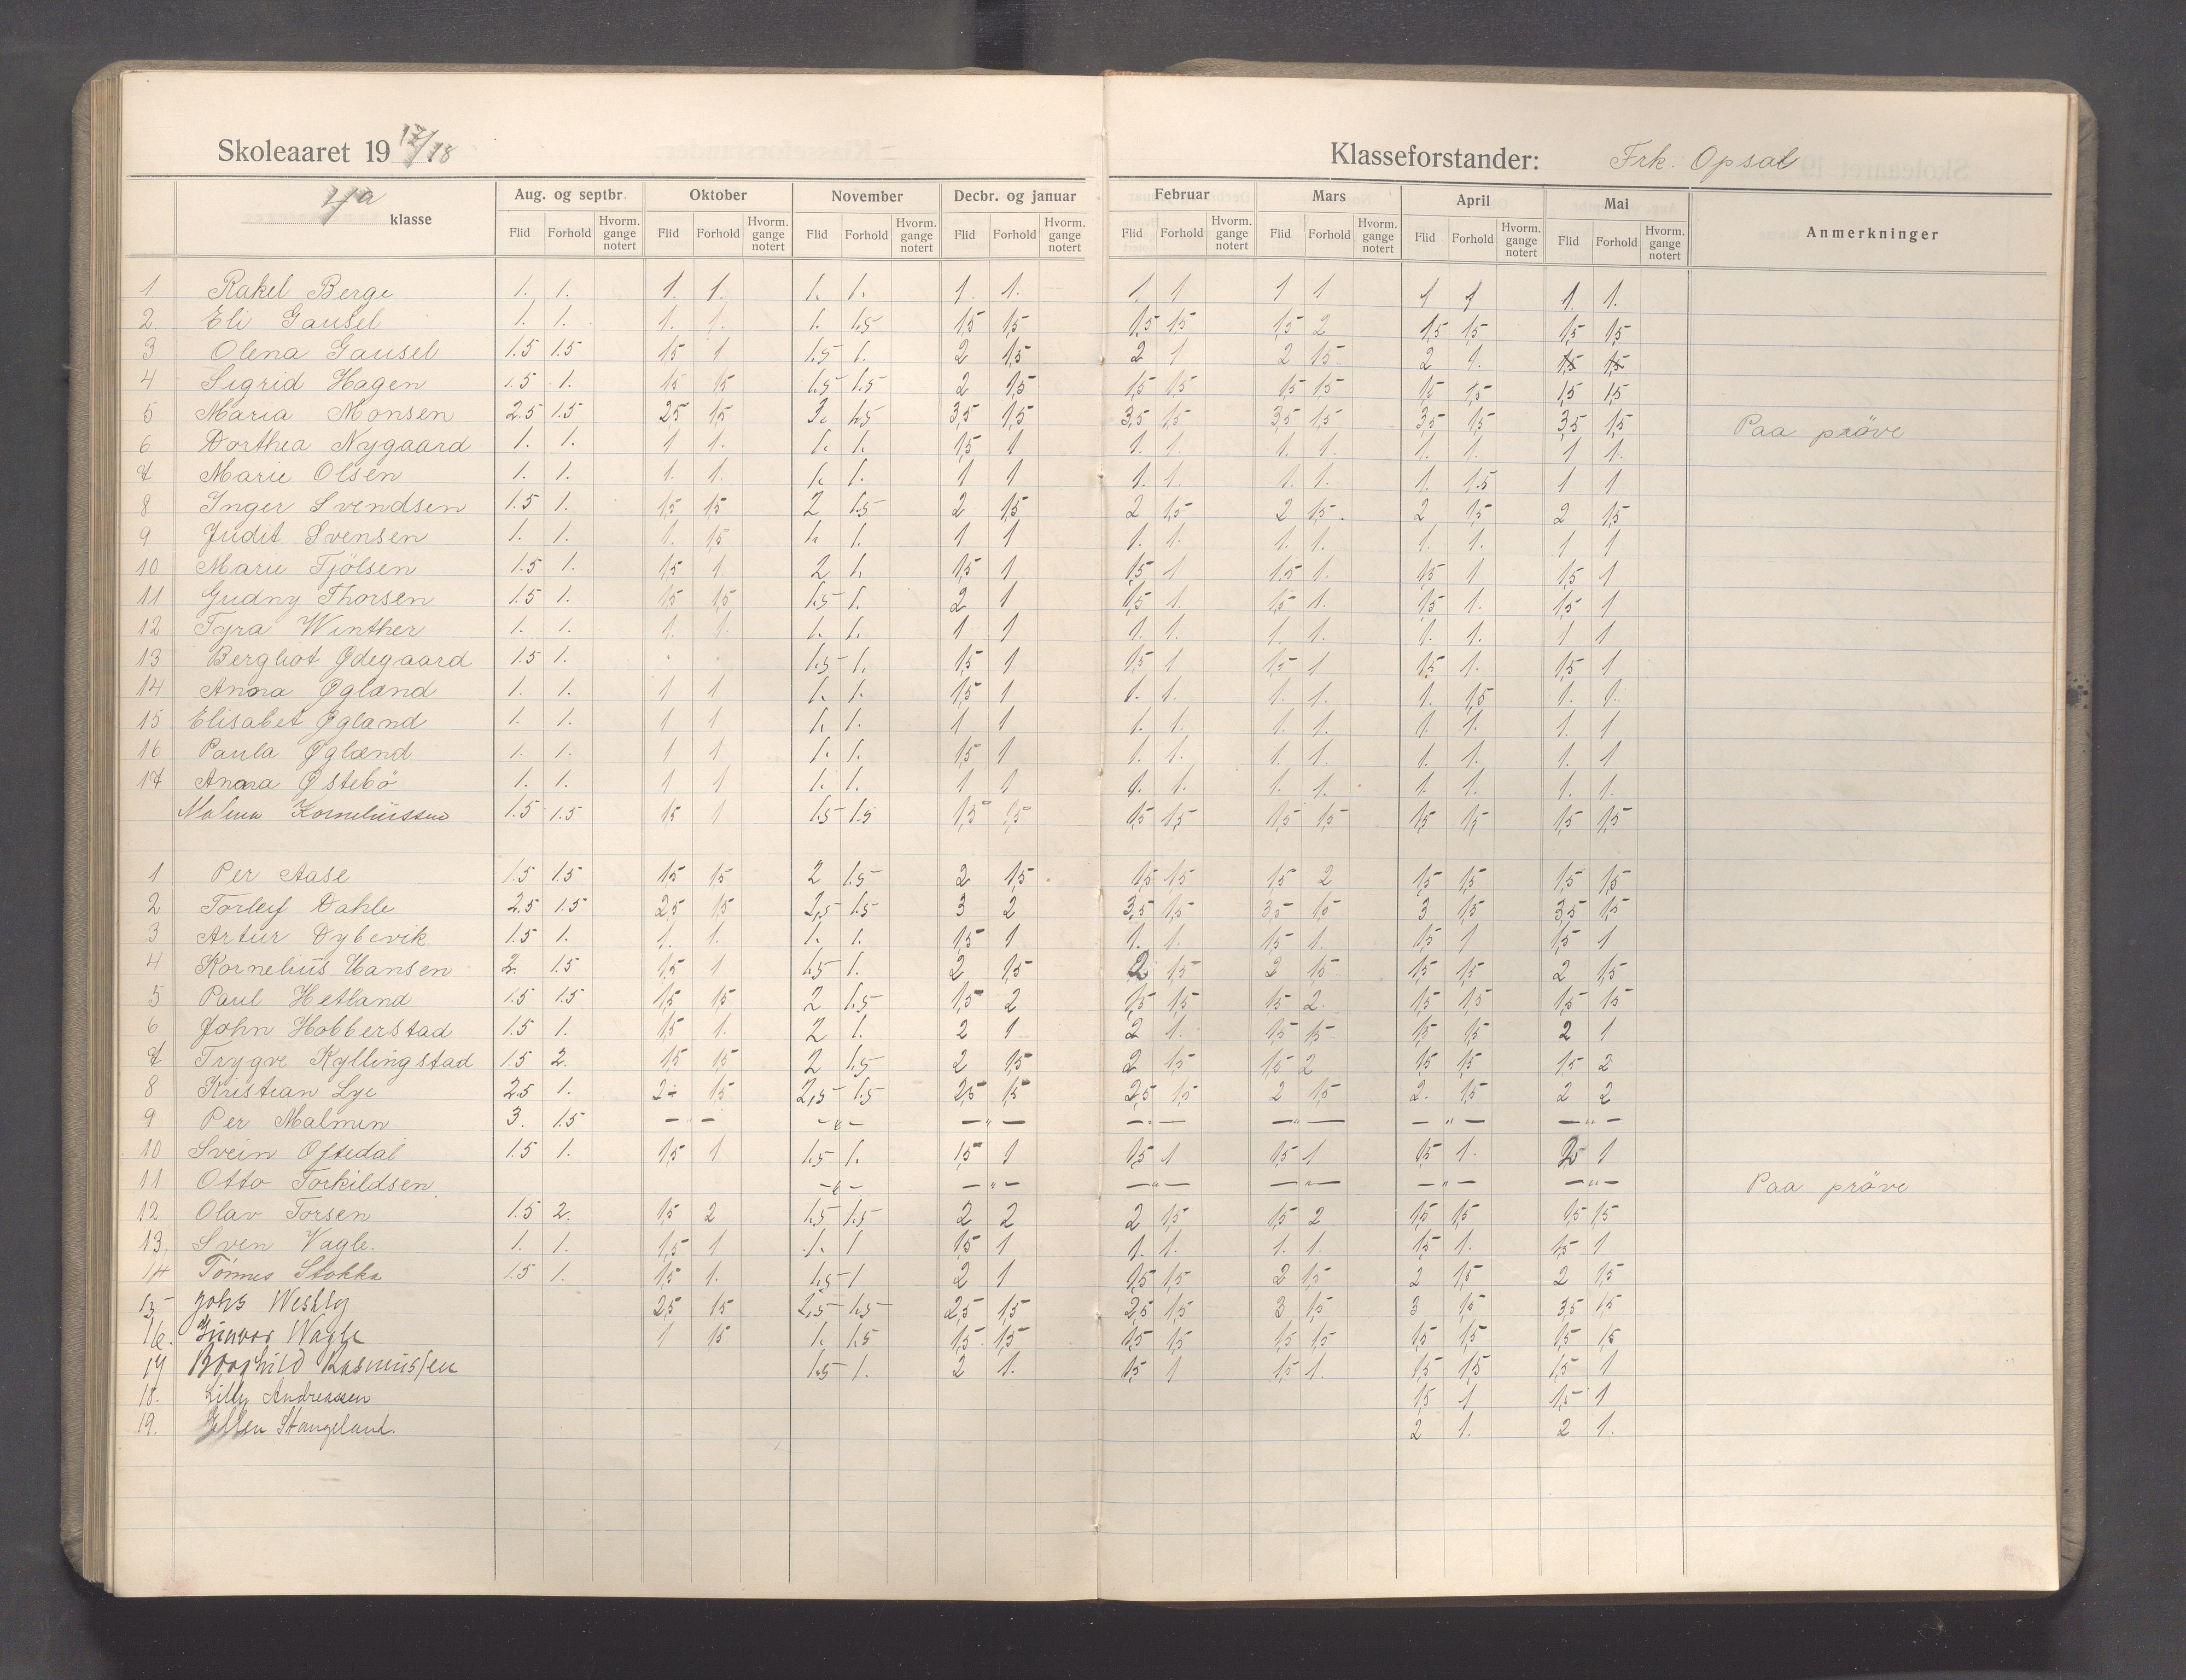 Skoleaaret 19 17/18 Klasseforstander: Frk. Opsal
4a klasse Aug. og septbr. Oktober November Decbr. og januar Februar Mars April Mai Anmerkninger
Flid Forhold Hvorm. gange notert Flid Forhold Hvorm. gange notert Flid Forhold Hvorm. gange notert Flid Forhold Hvorm. gange notert Flid Forhold Hvorm. gange notert Flid Forhold Hvorm. gange notert Flid Forhold Hvorm. gange notert Flid Forhold Hvorm. gange notert
1 Rakel Berge 1. 1. 1. 1. 1. 1. 1. 1. 1 1 1 1 1 1 1. 1.
2. Eli Gausel 1. 1. 1. 1. 1. 1.5 1,5 1,5 1,5 1,5 1,5 2 1,5 1,5 1,5 1,5
3 Olena Gausel 1.5 1.5 1,5 1 1.5 1. 2 1,5 2 1 2 1,5 2 1. 1,5 1,5
4 Sigrid Hagen 1.5 1. 1,5 1,5 1.5 1.5 2 1,5 1,5 1,5 1,5 1,5 1,5 1,5 1,5 1,5
5 Maria Monsen 2.5 1.5 2,5 1,5 3. 1.5 3,5 1,5 3,5 1,5 3,5 1,5 3,5 1,5 3,5 1,5 Paa pröve
6 Dorthea Nygaard 1. 1. 1 1. 1. 1. 1,5 1 1. 1. 1. 1. 1. 1. 1 1.
7 Marie Olsen 1. 1. 1. 1. 1. 1. 1 1 1. 1. 1. 1. 1. 1.5 1 1
8 Inger Svendsen 1.5 1. 1,5 1,5 2 1.5 2 1,5 2 1,5 2 1,5 2 1,5 2 1,5
9 Judit Svensen 1. 1. 1. 1,5 1. 1. 1 1 1. 1. 1. 1. 1. 1. 1 1
10 Marie Tjölsen 1.5 1. 1,5 1 2 1. 1,5 1 1,5 1 1.5 1. 1,5 1 1,5 1
11 Gudny Thorsen 1.5 1. 1,5 1,5 1.5 1. 2 1 1,5 1. 1,5 1. 1,5 1. 1,5 1
12 Tyra Winther 1. 1. 1. 1. 1. 1. 1 1 1. 1. 1. 1. 1. 1. 1 1
13 Bergliot Ødegaard 1.5 1. . . 1.5 1. 1,5 1 1,5 1 1,5 1 1,5 1. 1,5 1
14 Anna Øgland 1. 1. 1 1 1. 1. 1,5 1 1. 1. 1. 1. 1. 1,5 1. 1.
15 Elisabet Øgland 1. 1. 1 1 1. 1. 1 1 1. 1. 1. 1. 1. 1. 1. 1
16 Paula Øgland 1. 1. 1 1 1. 1. 1,5 1 1. 1. 1. 1. 1. 1. 1. 1
17 Anna Østebö 1. 1. 1 1 1. 1. 1 1 1. 1. 1. 1. 1. 1. 1. 1.
Malena Korneliussen 1.5 1.5 1,5 1 1.5 1.5 1,5 1,5 1,5 1,5 1,5 1,5 1,5 1,5 1,5 1,5
1 Per Aase 1.5 1.5 1,5 1,5 2 1.5 2 1,5 1,5 1,5 1,5 2 1,5 1,5 1,5 1,5
2 Torleif Dahle 2.5 1.5 2,5 1,5 2,5 1.5 3 2 3,5 1,5 3,5 1,5 3 1,5 3,5 1,5
3 Artur Dybevik 1.5 1. 1. 1. 1. 1. 1,5 1 1. 1. 1,5 1. 1,5 1 1,5 1
4 Kornelius Hansen 2. 1.5 1,5 1 1.5 1. 2 1,5 2 1,5 2 1,5 1,5 1,5 2 1,5
5 Paul Hetland 1.5 1.5 1,5 1,5 2 1.5 1,5 2 1,5 1,5 1,5 2. 1,5 1,5 1,5 1,5
6 John Hobberstad 1.5 1. 1,5 1. 2 1. 2 1 2 1. 1,5 1,5 1,5 1,5 2 1
7 Trygve Kyllingstad 1.5 2. 1,5 1,5 2 1.5 2 1,5 2 1,5 1,5 2 1,5 1,5 1,5 2
8 Kristian Lye 2.5 1. 2- 1,5 2,5 1.5 2,5 1,5 2,5 1,5 2 1,5 2. 1,5 2 2
9 Per Malmin 3. 1.5 — — -"- —"— —"— —"— —"— —"—
10 Svein Oftedal 1.5 1. 1,5 1 1.5 1. 1,5 1 1,5 1 1,5 1 1,5 1. 2,5 1
11 Otto Torkildsen. -"- —"— —"— —"— —"— —"— Paa pröve
12 Olav Torsen 1.5 2. 1,5 2 1.5 1.5 2 2 2 1,5 1,5 2 1,5 1,5 1,5 1,5
13. Sven Vagle. 1. 1. 1,5 1 1. 1 1,5 1 1. 1. 1. 1. 1,5 1. 1,5 1
14 Tönnes Stokka 1.5 1. 1,5 1. 1.5 1 2 1 1,5 1,5 2 1,5 2 1,5 2 1,5
15 Johs Westly 2,5 1,5 2,5 1.5 2,5 1,5 2,5 1,5 3 1,5 3 1,5 3,5 1,5
16. Gunvor Vagle 1 1,5 1. 1.5 1,5 1,5 1,5 1,5 1,5 1,5 1,5 1,5 1,5 1,5
17 Borghild Rasmussen 1.5 1. 2 1. 1,5 1 1,5 1. 1,5 1,5 1,5 1
18. Lilly Andreassen 1,5 1 1,5 1
19. Ellen Stangeland. 2 1. 2 1.